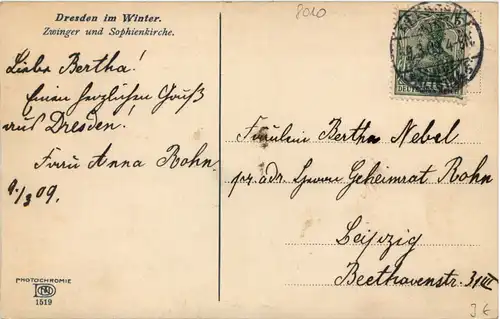 Dresden im Winter.
Zwinger und Sophienkirche.
8010
Liebe Bertha!
Einen herzlichen Gruß
aus Dresden!
Frau Anna Rohn.
9./3 09.
DEUTSCHES REICH
Fräulein Bertha Nebel
pr. adr. Herrn Geheimrat Rohn
Leipzig
Beethovenstr. 3 III
PHOTOCHROMIE
1519
3 €